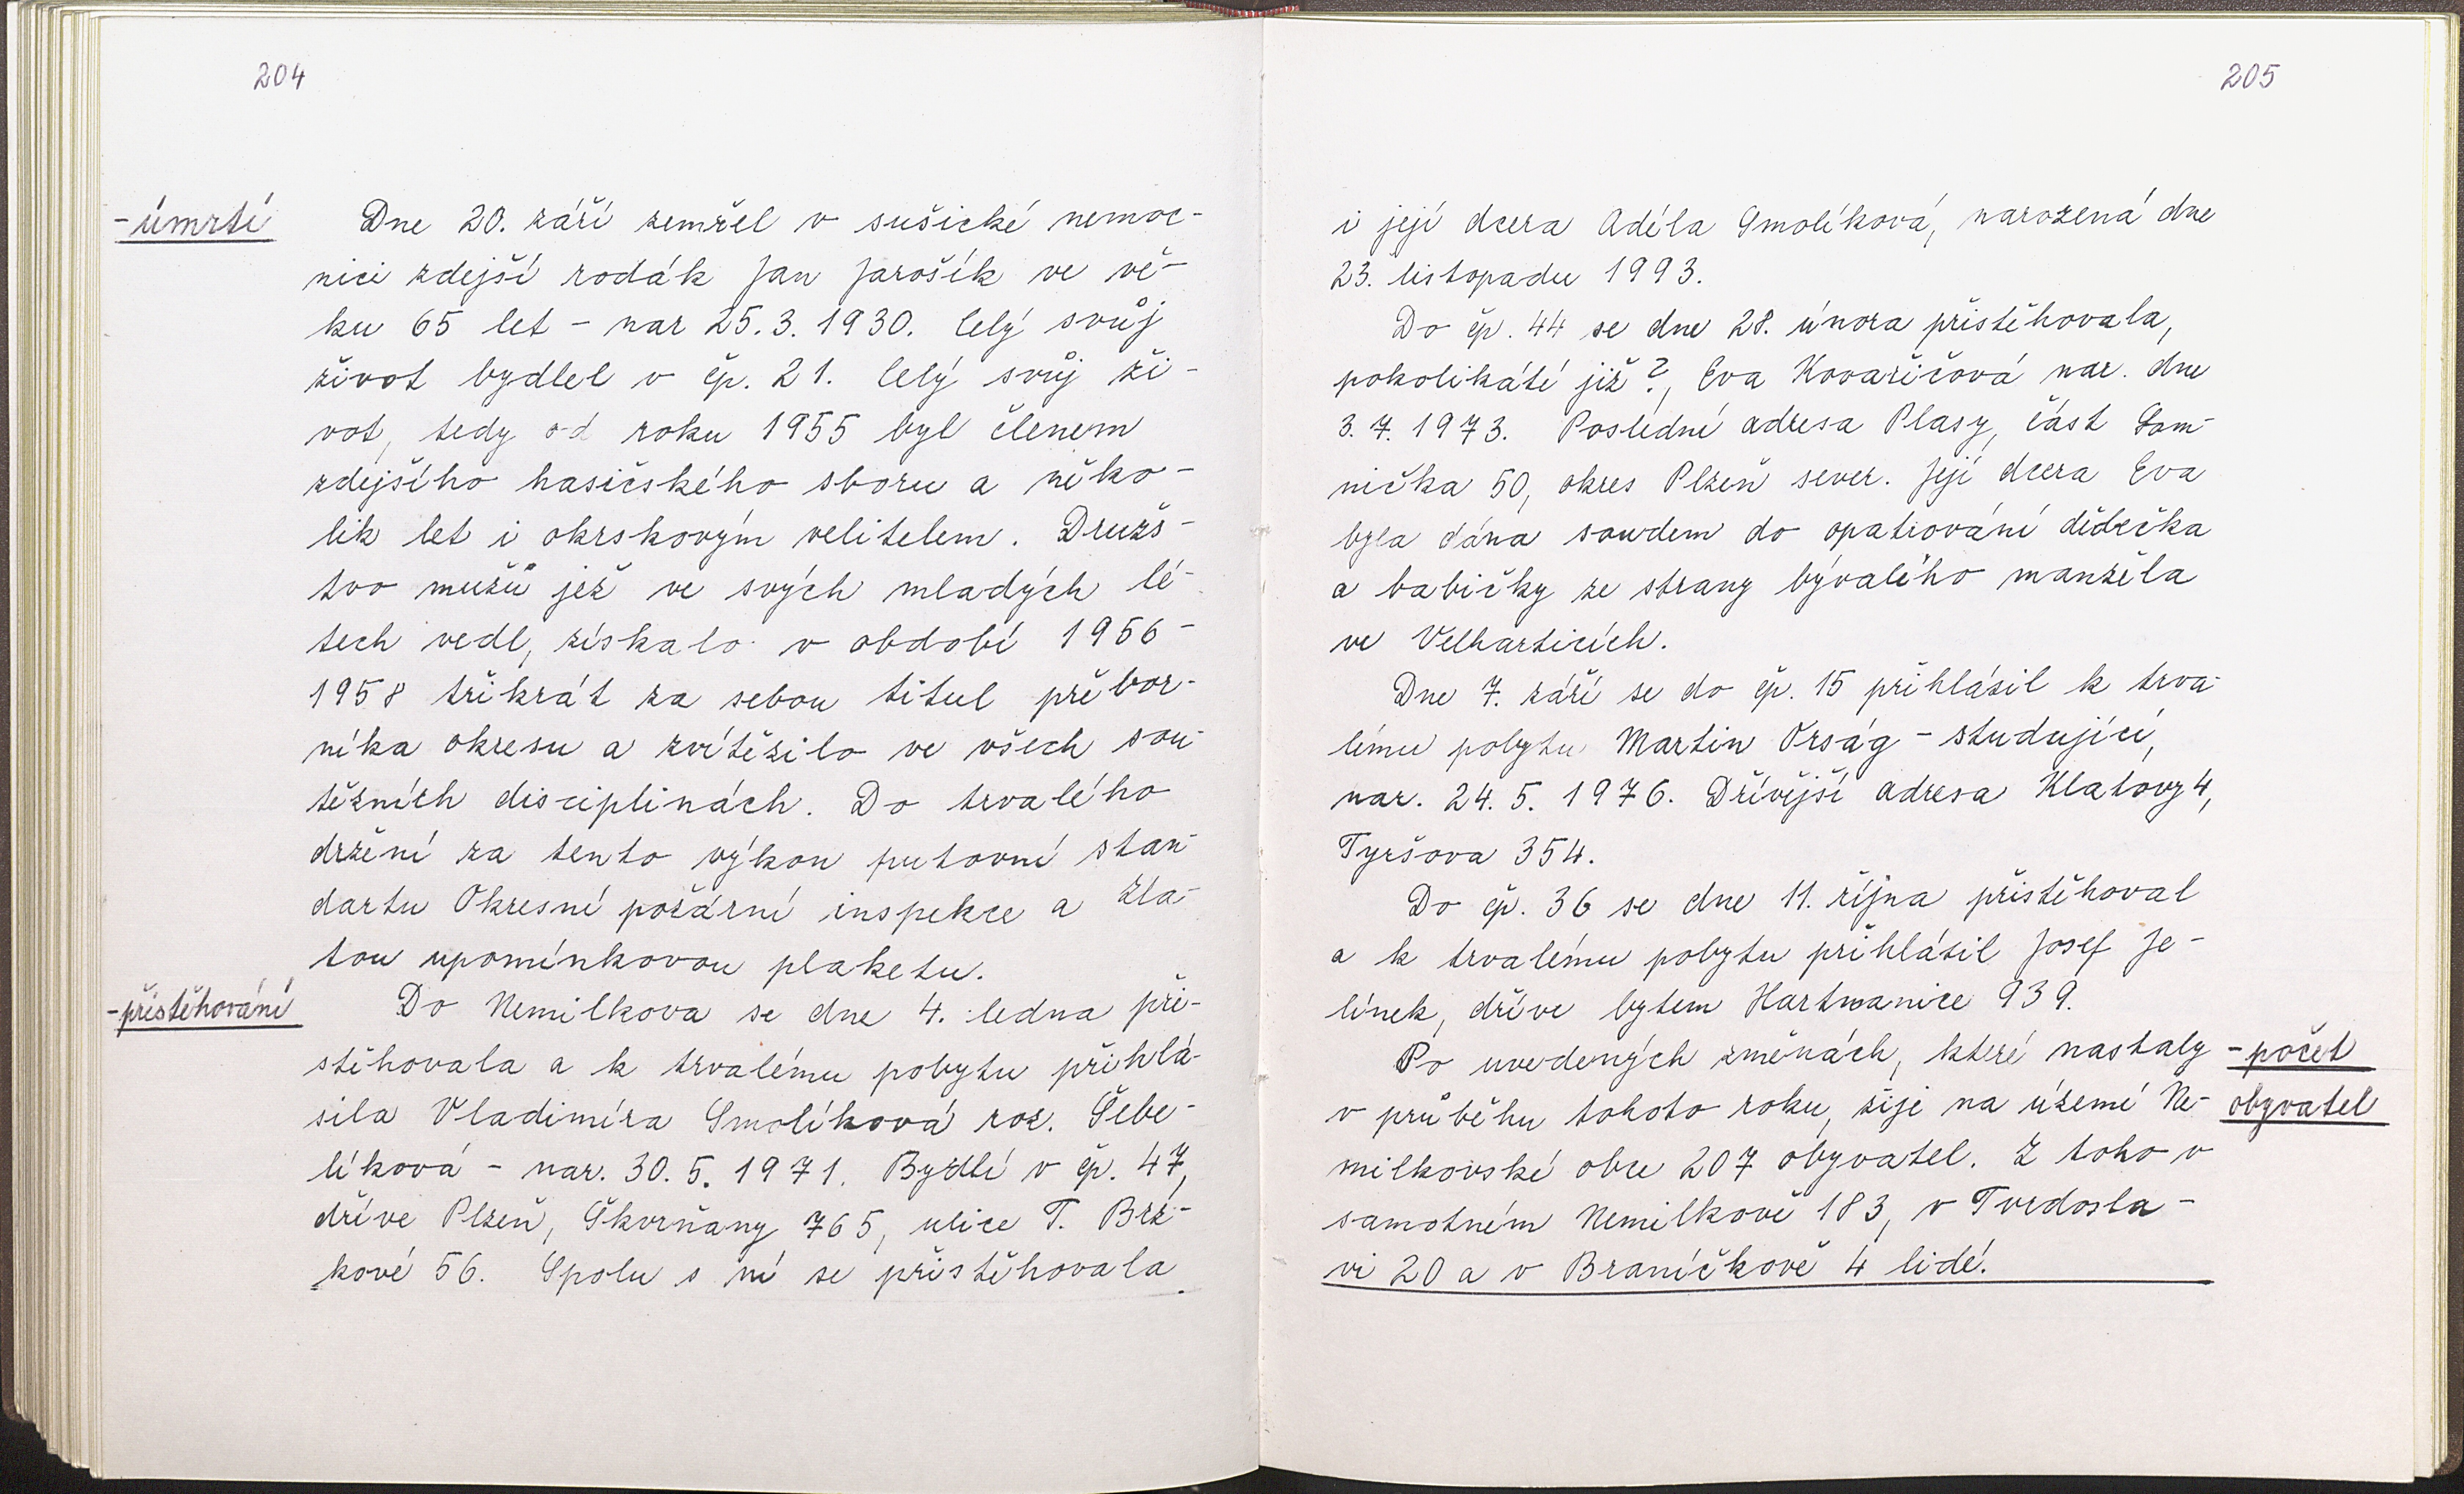 204
-úmrtí
Dne 20. září zemřel v sušické nemoc-
nici zdejší rodák Jan Jarošík ve vě-
ku 65 let - nar 25.3.1930. Celý svůj
život bydlel v čp. 21. Celý svůj ži-
vot, tedy od roku 1955 byl členem
zdejšího hasičského sboru a něko-
lik let i okrskovým velitelem. Družs-
tvo mužů jež ve svých mladých lé-
tech vedl, získalo v období 1956-
1958 třikrát za sebou titul přebor-
níka okresu a zvítězilo ve všech sou-
těžních disciplinách. Do trvalého
držení za tento výkon putovní stan-
dartu Okresní požární inspekce a zla-
tou upomínkovou plaketu.
-přistěhování
Do Nemilkova se dne 4. ledna při-
stěhovala a k trvalému pobytu přihlá-
sila Vladimíra Smolíková roz. Šebe-
líková - nar. 30.5.1971. Bydlí v čp. 47,
dříve Plzeň, Škvrňany 765, ulice T. Brz-
kové 56. Spolu s ní se přistěhovala
205
i její dcera Adéla Smolíková, narozená dne
23. listopadu 1993.
Do čp. 44 se dne 28. února přistěhovala,
pokolikáté již?, Eva Kovaříčová nar. dne
3.7.1973. Poslední adresa Plasy, část Lom-
nička 50, okres Plzeň sever. Její dcera Eva
byla dána soudem do opatrování dědečka
a babičky ze strany bývalého manžela
ve Velharticích.
Dne 7. září se do čp. 15 přihlásil k trva-
lému pobytu Martin Orság - studující,
nar. 24.5.1976. Dřívější adresa Klatovy 4,
Tyršova 354.
Do čp. 36 se dne 11. října přistěhoval
a k trvalému pobytu přihlásil Josef Je-
línek, dříve bytem Hartmanice 939.
Po uvedených změnách, které nastaly
-počet
obyvatel
v průběhu tohoto roku, žije na území Ne-
milkovské obce 207 obyvatel. Z toho v
samotném Nemilkově 183, v Tvrdosla-
vi 20 a v Braníčkově 4 lidé.